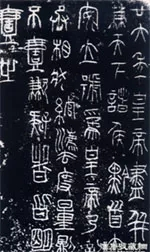 廿六年皇帝盡并
兼天下諸侯黔首大
安立號為皇帝乃
詔丞相狀綰灋度量則
不壹歉疑者皆明
壹之